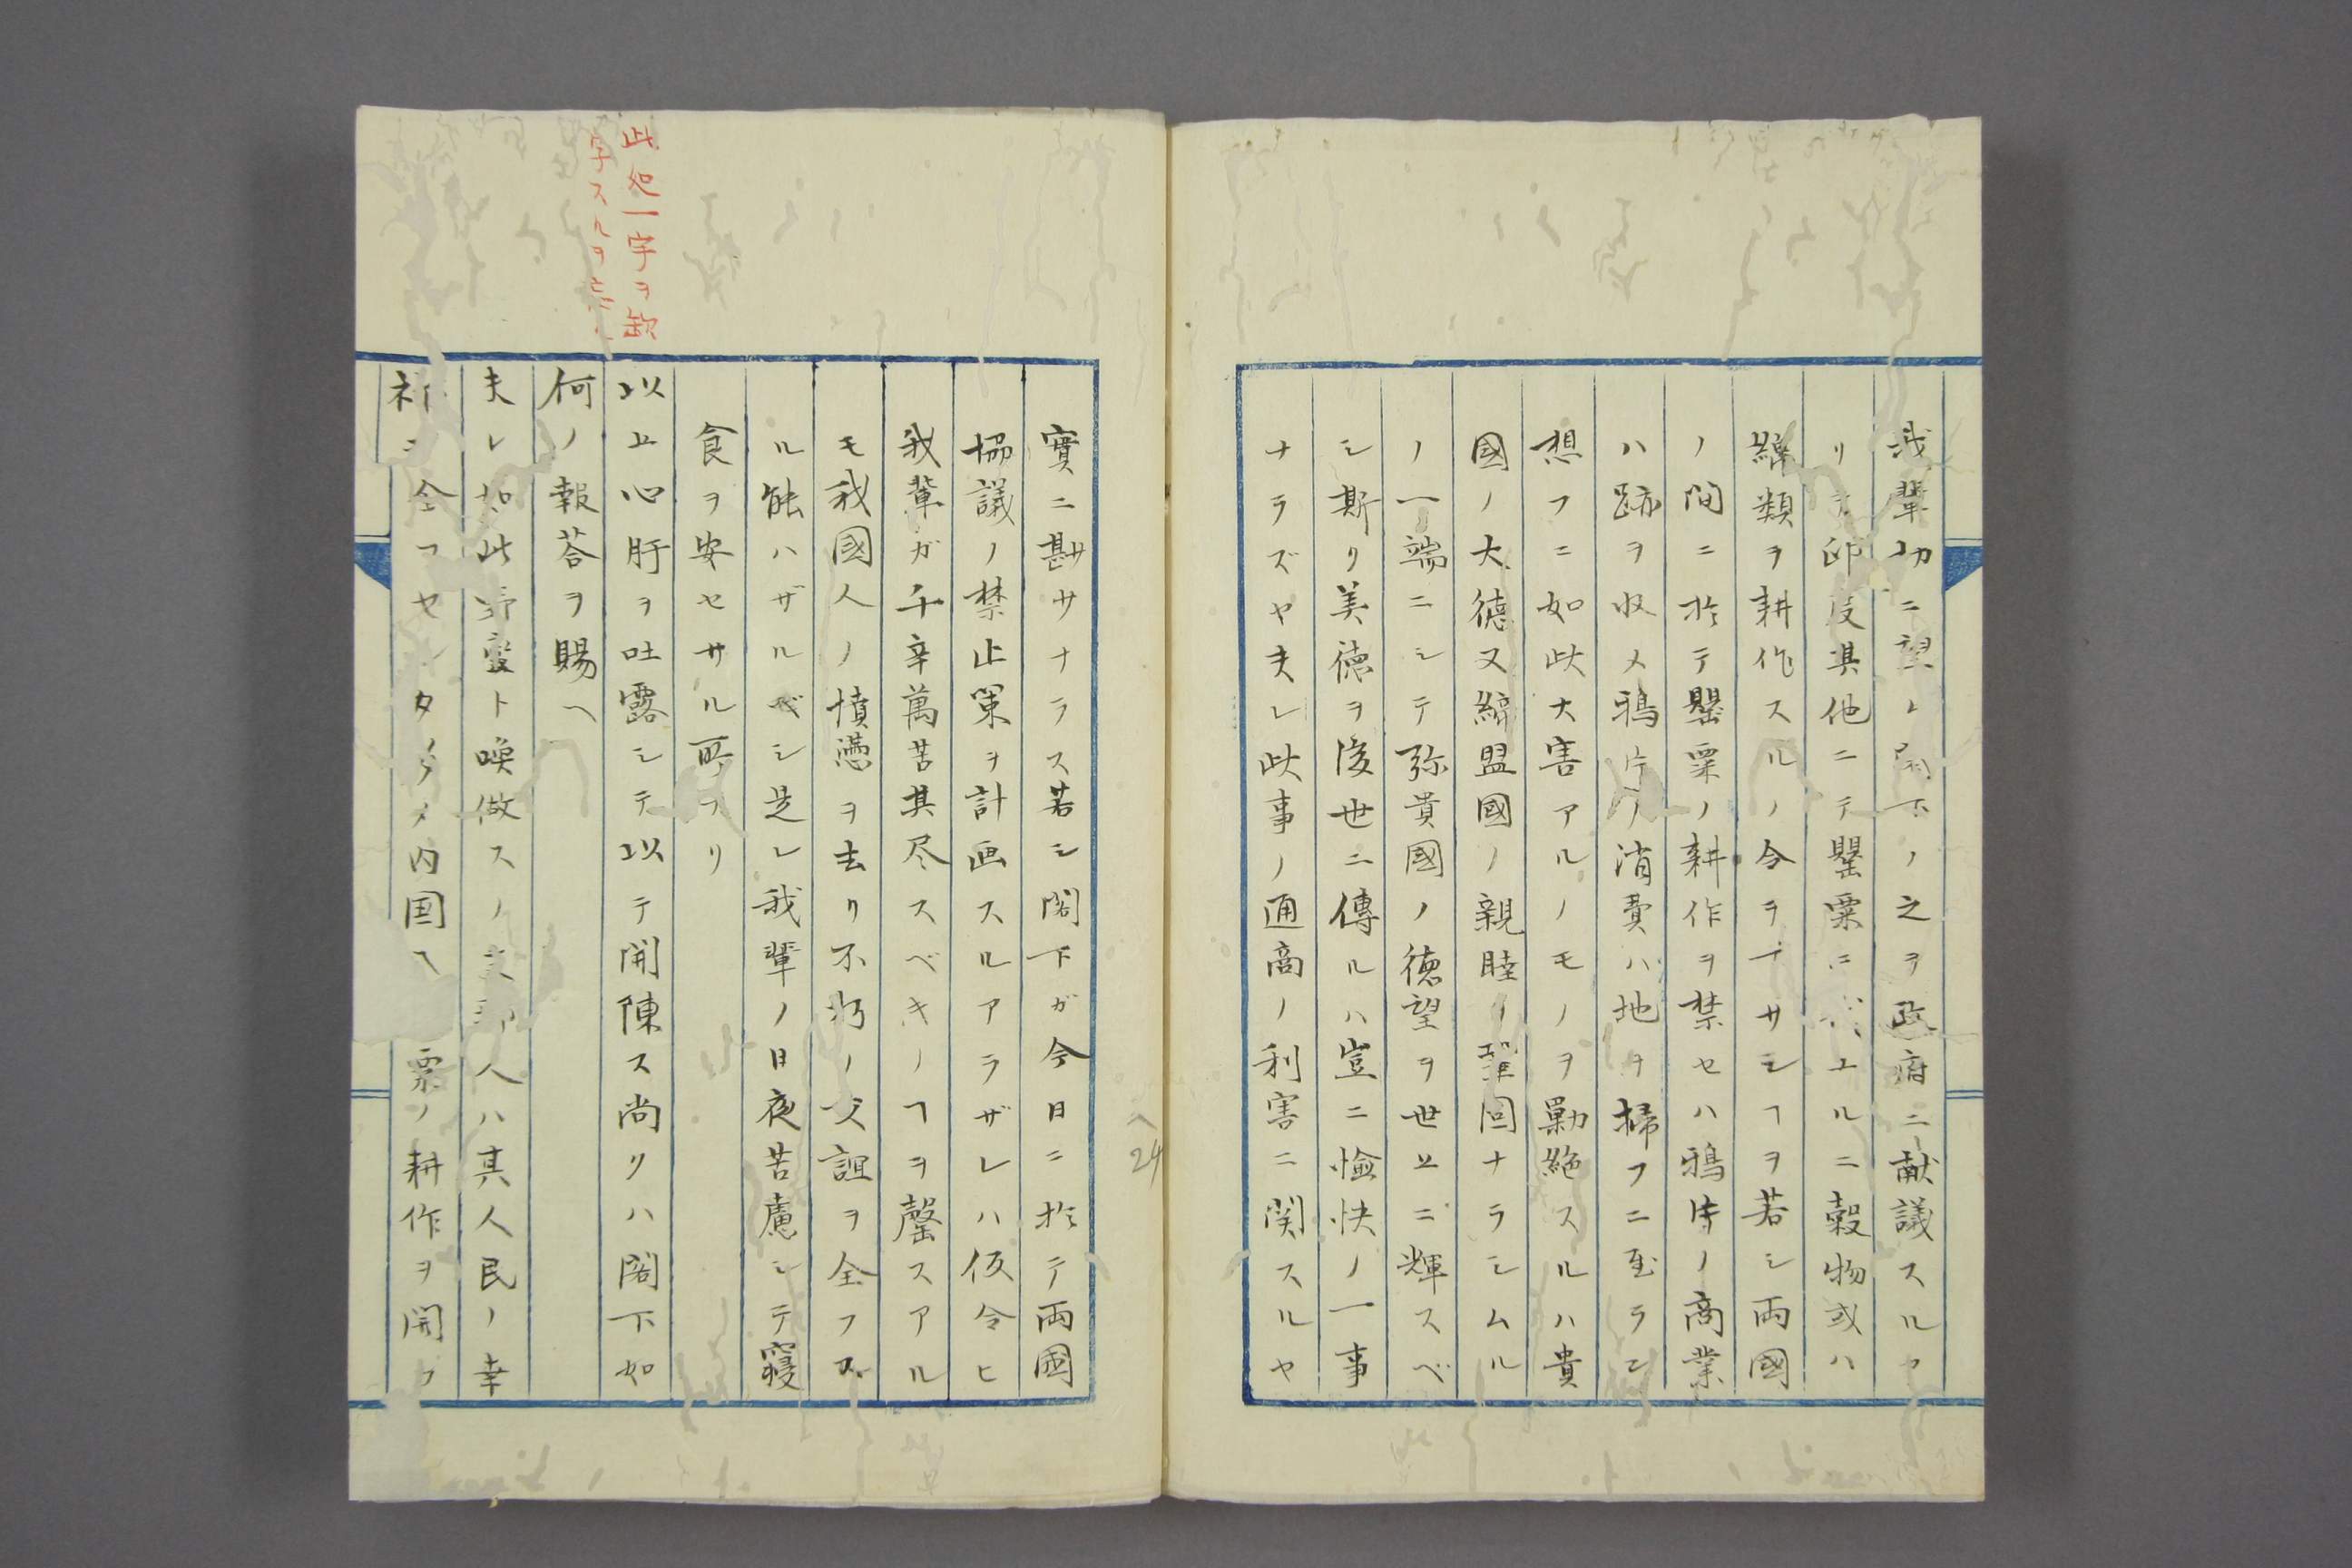 我輩切ニ望ム閣下ノ之ヲ政府ニ献議スルヤ
リテ印度其他ニテ罌粟ニ代ユルニ穀物或ハ
綿類ヲ耕作スルノ令ヲ下サンヿヲ若シ両國
ノ間ニ於テ罌粟ノ耕作ヲ禁セハ鴉片ノ商業
ハ跡ヲ収メ鴉片ノ消費ハ地ヲ掃フニ至ラン
想フニ如此大害アルノモノヲ勦絶スルハ貴
國ノ大徳又締盟國ノ親睦ノ鞏固ナラシムル
ノ一端ニシテ弥貴國ノ徳望ヲ世上ニ輝スベ
シ斯リ美徳ヲ後世ニ傳ルハ豈ニ愉快ノ一事
ナラズヤ夫レ此事ノ通商ノ利害ニ関スルヤ
實ニ尠サナラス若シ閣下ガ今日ニ於テ両國
協議ノ禁止策ヲ計画スルアラザレハ仮令ヒ
我輩ガ千辛萬苦其尽スベキノヿヲ罄スアル
モ我國人ノ憤懣ヲ去リ不朽ノ交誼ヲ全フス
ル能ハザルベシ是レ我輩ノ日夜苦慮シテ寝
食ヲ安セサル所ナリ
以上心肝ヲ吐露シテ以テ開陳ス尚リハ閣下如
何ノ報荅ヲ賜ヘ
夫レ如此野蛮ト喚做スノ支那人ハ其人民ノ幸
祉ヲ全フセンタメ内国ヘ 粟ノ耕作ヲ開ク
此処一字ヲ欽
字スルヲ忘
24